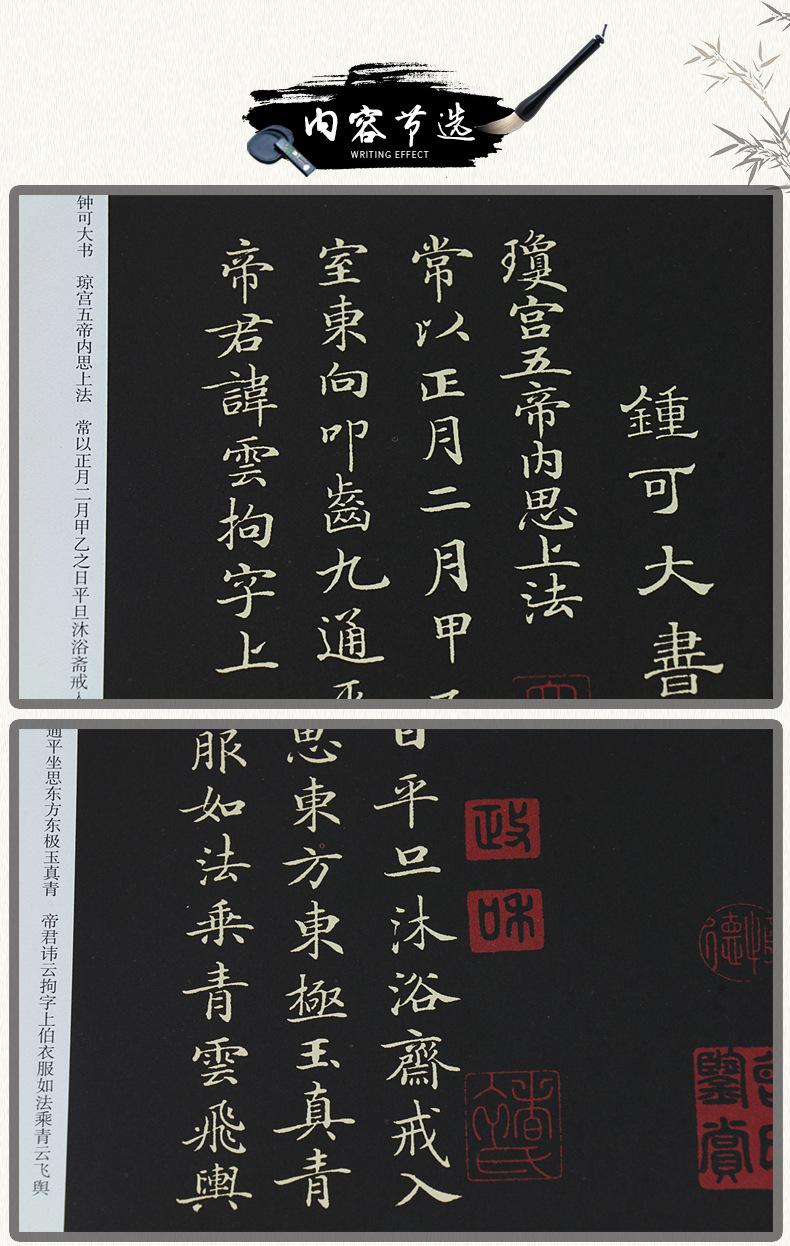 内容节选
WRITING EFFECT
鍾可大書
瓊宮五帝内思上法
常以正月二月甲
室東向叩齒九通
帝君諱雲拘字上
钟可大书 琼宫五帝内思上法 常以正月二月甲乙之日平旦沐浴斋戒
日平旦沐浴齋戒入
思東方東極玉真青
服如法乘青雲飛輿
政
和
鑒賞
通平坐思东方东极玉真青 帝君讳云拘字上伯衣服如法乘青云飞舆